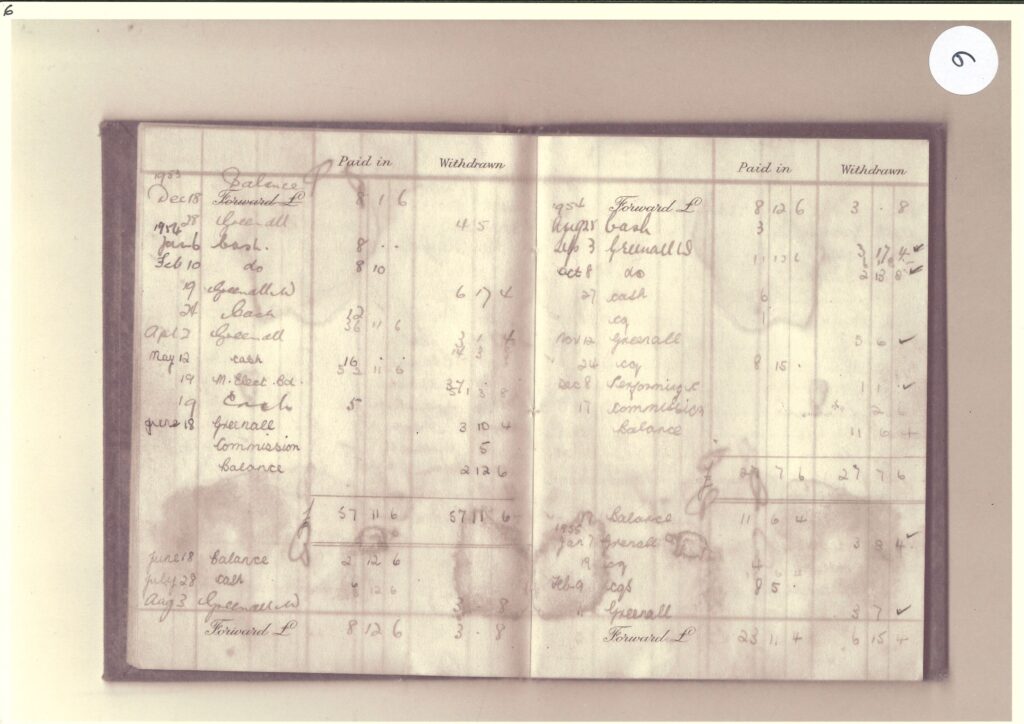 6
6
Paid in Withdrawn
1953 Balance
Dec 18 Forward £ 8 1 6
28 Greenall 4 5
1954
Jan 6 Cash. 8 . .
Feb 10 do 8 10
19 Greenall W 6 17 4
24 Cash 12
36 11 6
Apl 2 Greenall 3 1 4
May 12 cash 16 . .
53 11 6
19 M. Elect. Bd. 37 .
19 Cash 5
June 18 Greenall 3 10 4
Commission 5
Balance 2 12 6
57 11 6 57 11 6
June 18 Balance 2 12 6
July 28 cash 6
8 12 6
Aug 3 Greenall W 3 . 8
Forward £ 8 12 6 3 . 8
Paid in Withdrawn
1954 Forward £ 8 12 6 3 . 8
Aug 25 Cash 3
Sep 3 Greenall W 3 17 4
11 12 6
Oct 8 do 2 13 8
27 cash 6
cq 1
Nov 12 Greenall 5 6
24 cq 8 15 .
Dec 8 1 1 .
17 Commission 2 6
Balance 11 6 4
27 7 6 27 7 6
17 Balance 11 6 4
1955
Jan 7 Greenall 3 8 4
19 cq 4
Feb 9 cqs 8 5 .
Greenall 3 7
Forward £ 23 11 4 6 15 4